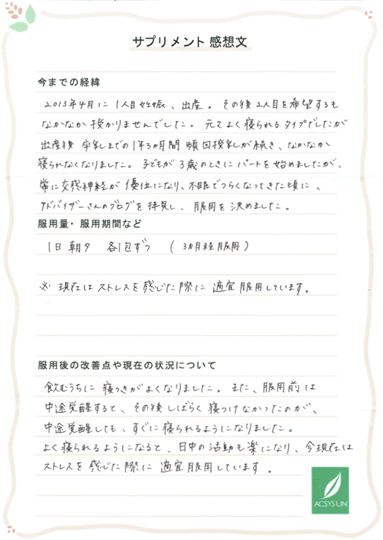 サプリメント 感想文
今までの経緯
2013年4月に1人目妊娠、出産。その後2人目を希望するも
なかなか授かりませんでした。元々よく寝られるタイプでしたが
出産後 卒乳までの1年3ヵ月間 頻回授乳が続き、なかなか
寝られなくなりました。子どもが3歳のときにパートを始めましたが、
常に交感神経が優位になり、不眠でつらくなってきた頃に、
アドバイザーさんのブログを拝見し、服用を決めました。
服用量・服用期間など
1日 朝夕 各1包ずつ （3ヵ月程服用）
※ 現在はストレスを感じた際に適宜服用しています。
服用後の改善点や現在の状況について
飲むうちに寝つきがよくなりました。また、服用前は
中途覚醒すると、その後しばらく寝つけなかったのが、
中途覚醒しても、すぐに寝られるようになりました。
よく寝られるようになると、日中の活動も楽になり、今現在は
ストレスを感じた際に適宜服用しています。
ACSYS UN